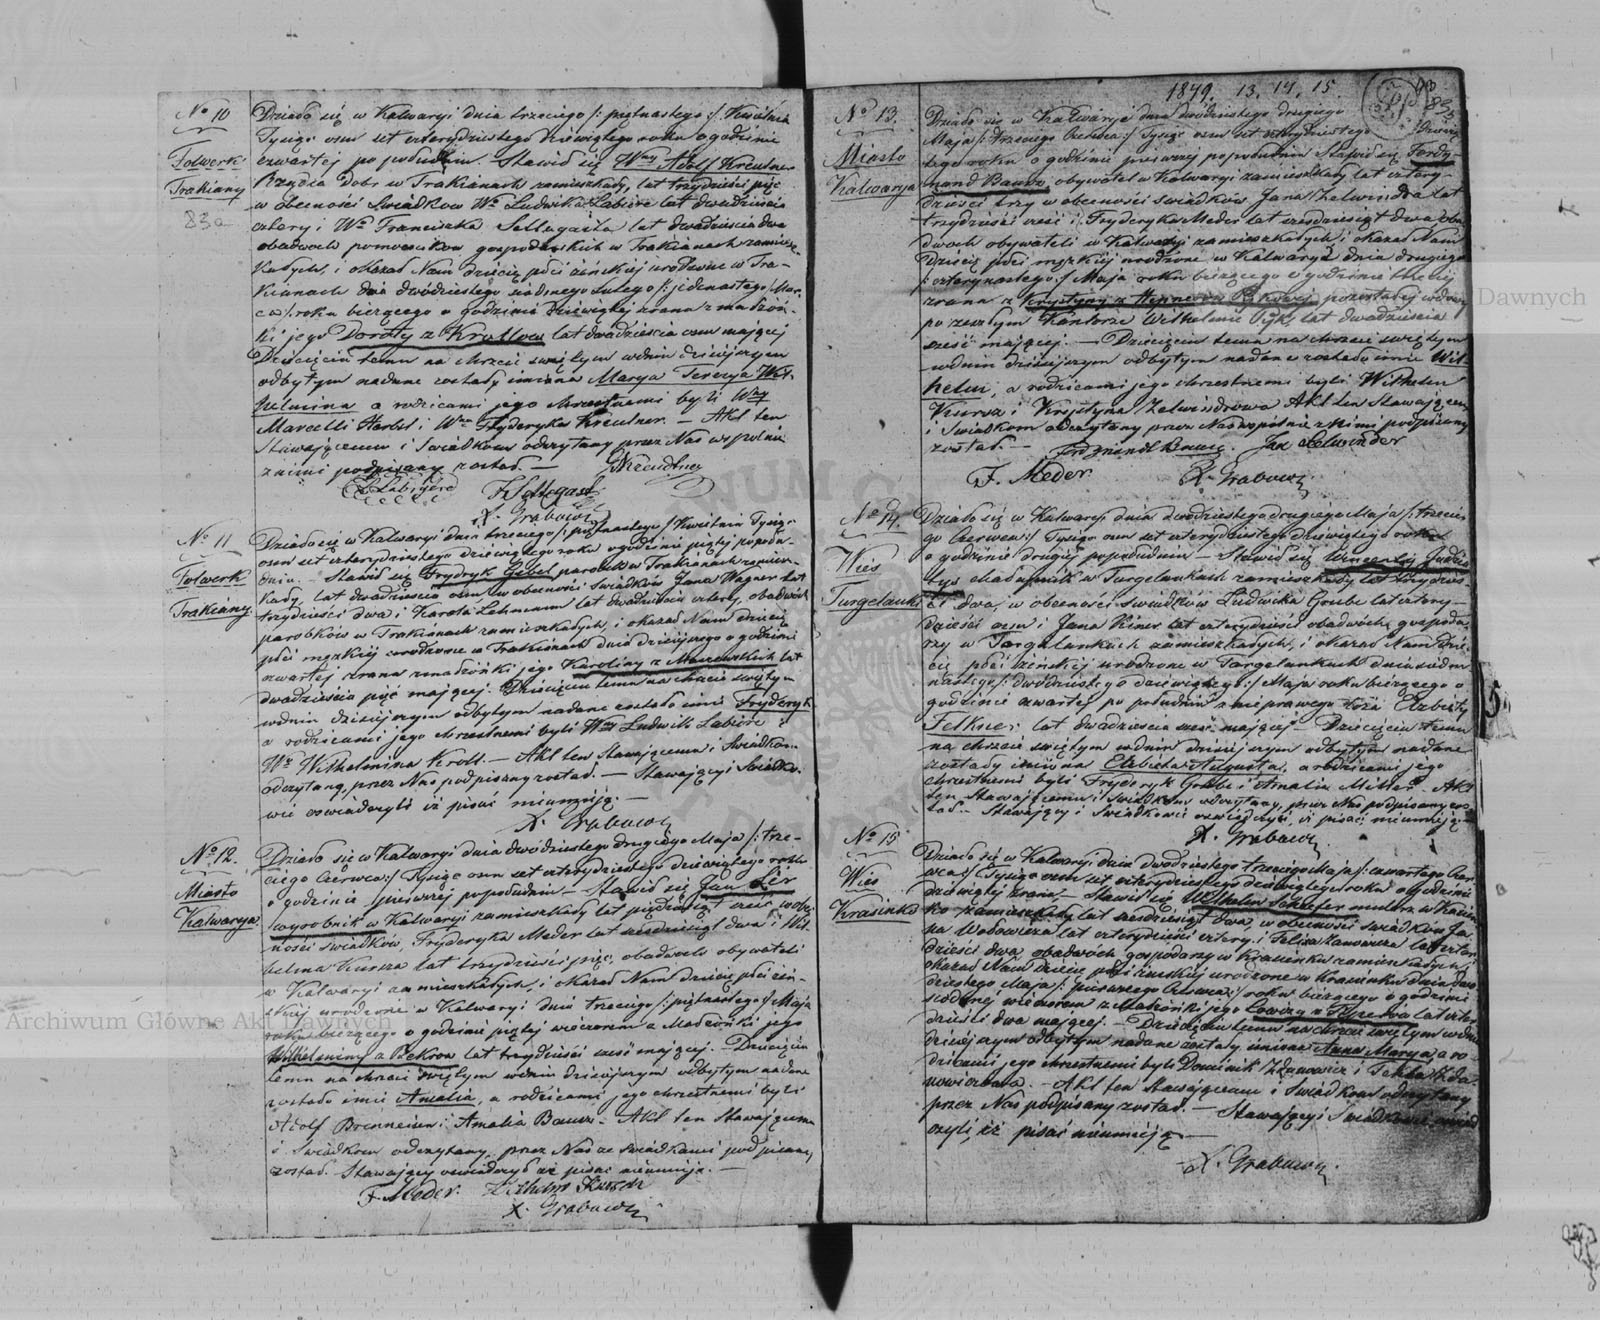 No 10
Folwerk
Trakiany
83a
Działo się w Kalwaryi dnia trzeciego /: piętnastego :/ Kwietnia
Tysiąc osm set czterydziestego dziewiątego roku o godzinie
czwartej po południu. Stawił się Wny Adolf Kreutner
Rządca Dobr w Trakianach zamieszkały, lat trzydzieści pięć
w obecności Swiadkow Wo Ludwika Labiere lat dwadzieścia
cztery i Wo Franciszka Settegasta lat dwadzieścia dwa
obudwoch pomocnikow gospodarskich w Trakianach zamiesz-
kałych, i okazał Nam dziécię płci żeńskiéj urodzone w Tra-
kianach dnia dwódziestego siódmego Lutego /: jedenastego Mar-
ca :/ roku bieżącego o godzinie dziewiątej zrana z małżón-
ki jego Doroty z Krollow lat dwadzieścia osm mającéj
Dziecięciu temu na chrzcie swiętym w dniu dzisiejszym
odbytym nadane zostały imiona Marya Tereza Wil-
helmina a rodzicami jego chrzestnemi byli Wny
Marcelli Herbst i Wna Fryderyka Kreutner. — Akt ten
Stawającemu i Swiadkom odczytany przez Nas wspolnie
z nimi podpisany został. —
Labiere
F Settegast
X. Grabowski
No 11
Folwerk
Trakiány
Działo się w Kalwaryi dnia trzeciego /: piętnastego :/ Kwietnia Tysiąc
osm set czterydziestego dziewiątego roku o godzinie piątej popołu-
dniu. Stawił się Frydryk Gebel parobek w Trakianach zamiesz-
kały, lat dwadzieścia osm w obecności Swiadków Jana Wagner lat
trzydzieści dwa i Karola Lehmann lat dwadzieścia cztery, obudwóch
parobków w Trakianach zamieszkałych, i okazał Nam dziécię
płci męzkiéj urodzone w Trakianach dnia dzisiejszego o godzinie
czwartéj zrana z małżónki jego Karoliny z lat
dwadzieścia pięć mającéj. Dziecięciu temu na chrzcie swiętym
w dniu dzisiejszym odbytym nadane zostało imie Fryderyk
a rodzicami jego chrzestnemi byli Wny Ludwik Labiere i
Wa Wilhelmina Kroll. — Akt ten Stawającemu i Swiadkom
odczytany, przez Nas podpisany został. — Stawający i Swiadko-
wie oswiadczyli iż pisać nieumieją. —
X. Grabowski
No 12.
Miasto
Kalwarya
Działo się w Kalwaryi dnia dwódziestego drugiego Maja /: trze-
ciego Czerwca :/ Tysiąc osm set czterydziestego dziewiątego roku
o godzinie pierwszéj popołudniu — Stawił się Jan Ler
wyrobnik w Kalwaryi zamieszkały lat pięćdziesiąt sześć w obe-
cności Swiadkow, Fryderyka Meder lat sześdziesiąt dwa i Wil-
helma Kursza lat trzydzieści pięć, obudwoch obywateli
w Kalwaryi zamieszkałych, i okazał Nam dziécię płci żeń-
skiéj urodzone w Kalwaryi dnia trzeciego /: piętnastego :/ Maja
roku bieżącego o godzinie piątéj wieczorem z Małżónki jego
Wilhelminy z Bekrow lat trzydzieści sześć mającéj. — Dziecięciu
temu na chrzcie swiętym w dniu dzisiejszym odbytym nadane
zostało imie Amalia, a rodzicami jego chrzestnemi byli
Adolf i Amalia Bauer. — Akt ten Stawającemu
i Swiadkom odczytany, przez Nas ze swiadkami podpisany
został. Stawający oswiadczył iż pisać nieumieje. —
F. Meder. Wilhelm Kursch
X. Grabowski
1849. 13. 14. 15.
No 13.
Miasto
Kalwarya
Działo się w Kalwaryi dnia dwódziestego drugiego
Maja /: trzeciego Czerwca :/ Tysiąc osm set czterydziestego dziewią-
tego roku o godzinie pierwszéj popołudniu Stawił się Ferdy-
nand Bauer, obywatel w Kalwaryi zamieszkały lat cztery-
dzieści trzy w obecności swiadków Jana Zelwindra lat
trzydzieści sześć i Fryderyka Meder lat sześdziesiąt dwa obu-
dwoch obywateli w Kalwaryi zamieszkałych i okazał Nam
Dziécię płci męzkiéj urodzone w Kalwaryi dnia drugiego
/: czternastego :/ Maja roku bieżącego o godzinie
zrana z Krystyny z pozostałéj wdowy
po zeszłym Kantorze Wilhelmie lat dwadzieścia
sześć mającéj. — Dziecięciu temu na chrzcie swiętym
w dniu dzisiejszym odbytym nadane zostało imie Wil-
helm, a rodzicami jego chrzestnemi byli Wilhelm
Kursz i Krystyna Zelwindrowa Akt ten Stawającemu
i Swiadkom odczytany przez Nas wspólnie z Nimi podpisany
został. — Ferdynandt Bauer Jan Selwinder
F. Meder X. Grabowski
No 14.
Wieś
Turgelauki
Działo się w Kalwaryi dnia dwodziestego drugiego Maja /: trzecie-
go Czerwca :/ Tysiąc osm set czterydziestego dziewiątego roku
o godzinie drugiéj popołudniu — Stawił się Wincenty
chałupnik w Turgelaukach zamieszkały lat trzydzieś-
ci dwa, w obecności swiadków Ludwika Grube lat cztery-
dzieści osm i Jana Kiner lat czterydzieści obudwóch gospoda-
rzy w Turgelaukach zamieszkałych, i okazał Nam Dzié-
cię płci żeńskiéj urodzone w Turgelaukach dnia siedm-
nastego /: dwódziestego dziewiątego :/ Maja roku bieżącego o
godzinie czwartéj po południu z nieprawego łoża Elżbiety
Felkner lat dwadzieścia sześć mającéj — Dziecięciu temu
na chrzcie swiętym w dniu dzisiejszym odbytym nadane
zostały imiona Elżbieta Augusta, a rodzicami jego
chrzestnemi byli Fryderyk Grube i Amalia Miller. Akt
ten Stawającemu i Swiadkom odczytany, przez Nas podpisany zos-
tał. Stawający i Swiadkowie oswiadczyli, iż pisać nieumieją. —
X. Grabowski
No 15
Wieś
Krasinka
Działo się w Kalwaryi dnia dwódziestego trzeciego Maja /: czwartego Czer-
wca :/ Tysiąc osm set czterydziestego dziewiątego roku o godzinie
dziewiątéj zrana. Stawił się Wilhelm Schaefer mularz w Krasin-
ko zamieszkały lat sześdziesiąt dwa, w obecności swiadkow Ja-
na lat czterydzieści cztery, i Felixa lat czter-
dzieści dwa, obudwóch gospodarzy w Krasinku zamieszkałych, i
okazał Nam dziécię płci żeńskiéj urodzone w Krasinku dnia dwu-
dziestego Maja /: pierwszego Czerwca :/ roku bieżącego o godzinie
siódméj wieczorem z Małżónki jego Lowizy z lat czter-
dzieści dwa mającéj. — Dziecięciu temu na chrzcie swiętym w dniu
dzisiéjszym odbytym nadane zostały imiona Anna Marya, a ro-
dzicami jego chrzestnemi byli Dominik Zdanowicz i Tekla Zda-
nowiczowa. — Akt ten Stawającemu i Swiadkom odczytany
przez Nas podpisany został. — Stawający i Swiadkowie oswiad-
czyli iż pisać nieumieją. —
X. Grabowski
Archiwum Główne Akt Dawnych
Dawnych